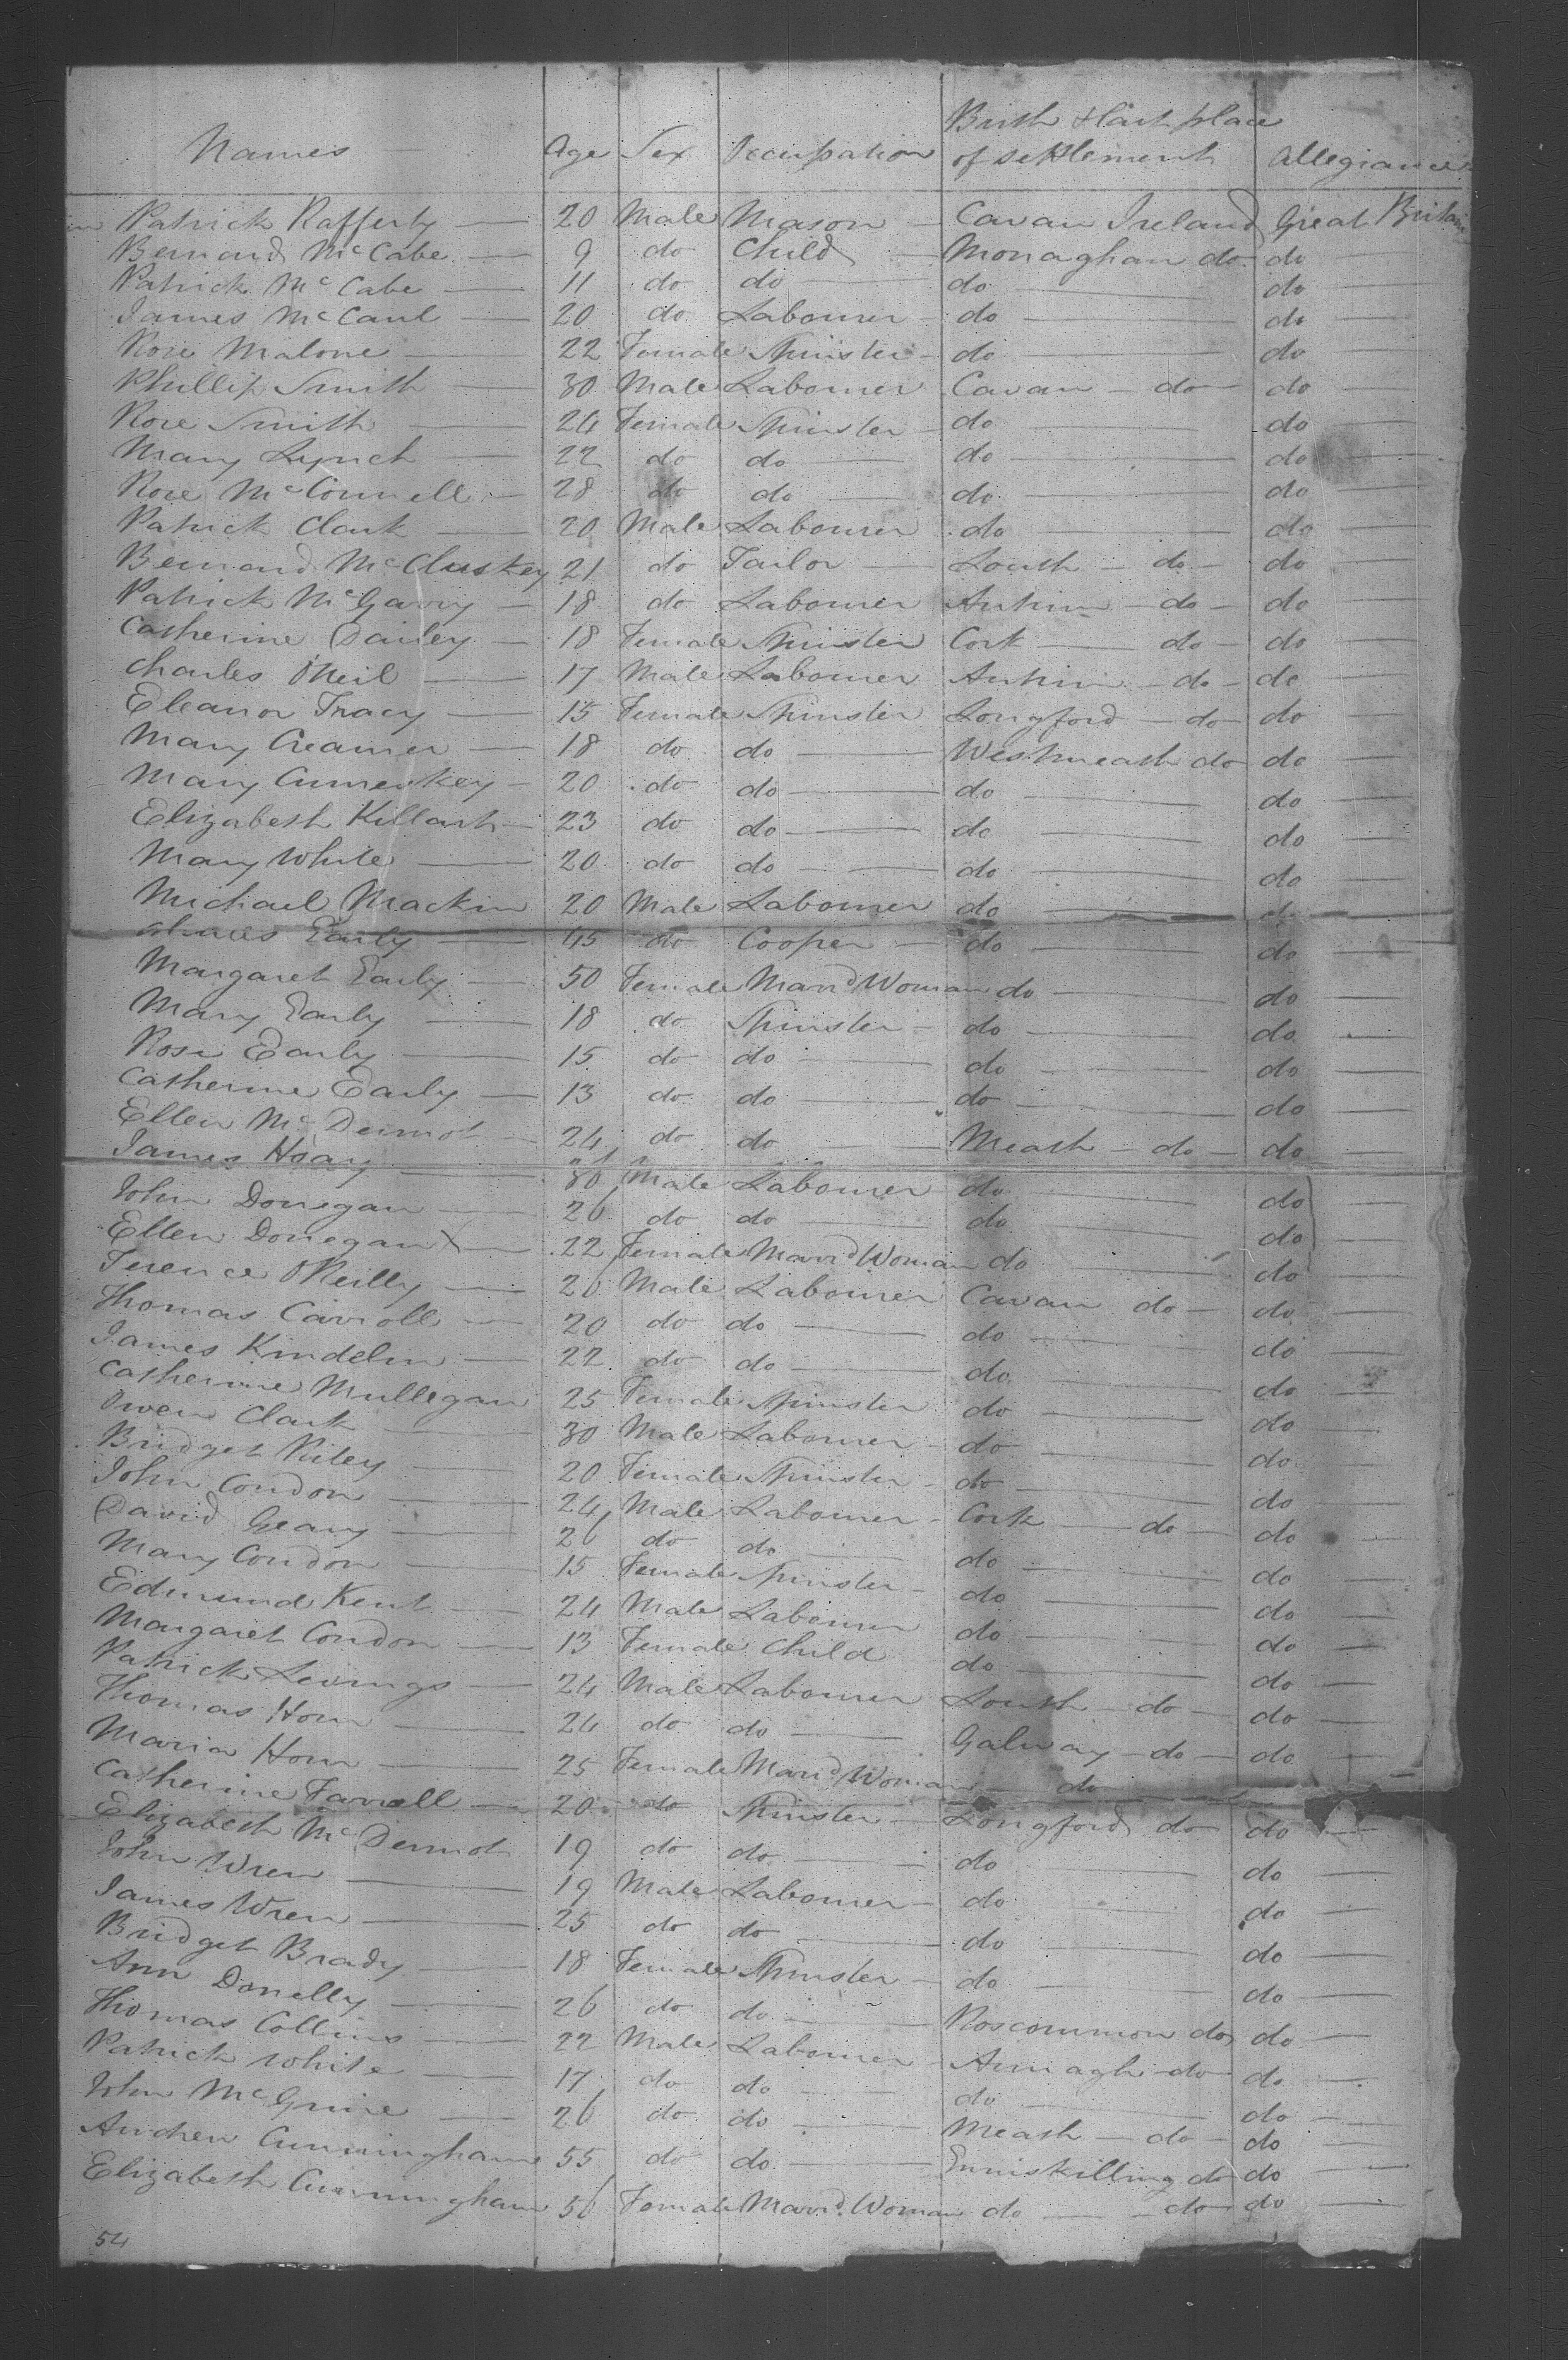 Names Age Sex Occupation Birth & Last place of settlement Allegiance
Patrick Rafferty 20 Male Mason Cavan Ireland Great Britain
Bernard McCabe 9 do Child Monaghan do do
Patrick McCabe 11 do do do do
James McCaul 20 do Labourer do do
Rose Malone 22 Female Spinster do do
Phillip Smith 30 Male Labourer Cavan do do
Rose Smith 24 Female Spinster do do
Mary Lynch 22 do do do do
Rose McConnell 28 do do do do
Patrick Clark 20 Male Labourer do do
Bernard McCluskey 21 do Tailor Louth do do
Patrick McGarry 18 do Labourer Antrim do do
Catherine Dailey 18 Female Spinster Cork do do
Charles ONeil 17 Male Labourer Antrim do do
Eleanor Tracy 15 Female Spinster Longford do do
Mary Creamer 18 do do Westmeath do do
Mary Cumeskey 20 do do do do
Elizabeth 23 do do do do
Mary White 20 do do do do
Michael Mackin 20 Male Labourer do do
Early 45 do Cooper do do
Margaret Early 50 Female Marrd Woman do do
Mary Early 18 do Spinster do do
Rose Early 15 do do do do
Catherine Early 13 do do do do
Ellen McDermot 24 do do Meath do do
James Hoay 30 Male Labourer do do
John Donegan 26 do do do do
Ellen Donegan X 22 Female Marrd Woman do do
Terence OReilly 20 Male Labourer Cavan do do
Thomas Carroll 20 do do do do
James Kindelin 22 do do do do
Catherine Mullegan 25 Female Spinster do do
Owen Clark 30 Male Labourer do do
Bridget Riley 20 Female Spinster do do
John Condon 24 Male Labourer Cork do do
David Geary 26 do do do do
Mary Condon 15 Female Spinster do do
Edmund Kent 24 Male Labourer do do
Margaret Condon 13 Female Child do do
Patrick Levings 24 Male Labourer Louth do do
Thomas Horn 24 do do Galway do do
Maria Horn 25 Female Marrd Woman do
Catherine Farrell 20 do Spinster Longford do do
Elizabeth McDermot 19 do do do do
John Wren 19 Male Labourer do do
James Wren 25 do do do do
Bridget Brady 18 Female Spinster do do
Ann Donelly 26 do do Roscommon do do
Thomas Collins 22 Male Labourer Armagh do do
Patrick White 17 do do do do
John McGuire 26 do do Meath do do
Andrew Cunningham 55 do do Enniskilling do do
Elizabeth Cunningham 56 Female Marrd. Woman do do do
54